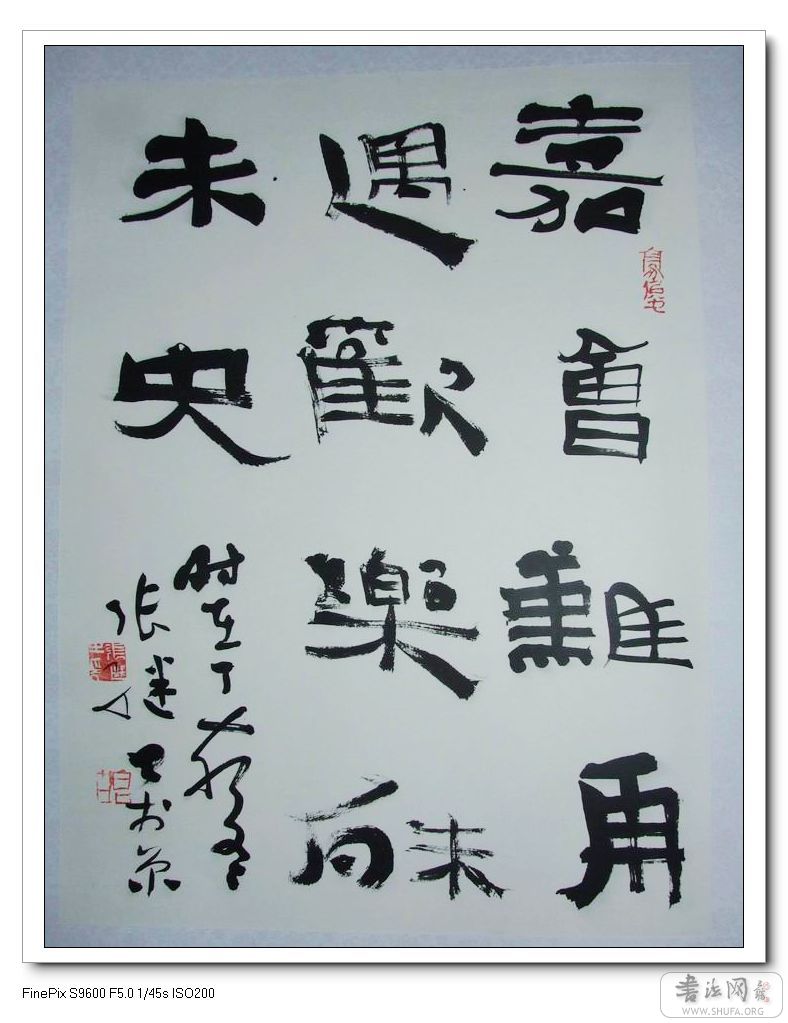 嘉會難再
遇歡樂殊
未央
时在丁
张继
於京
FinePix S9600 F5.0 1/45s ISO200
書法网
WWW.SHUFA.ORG